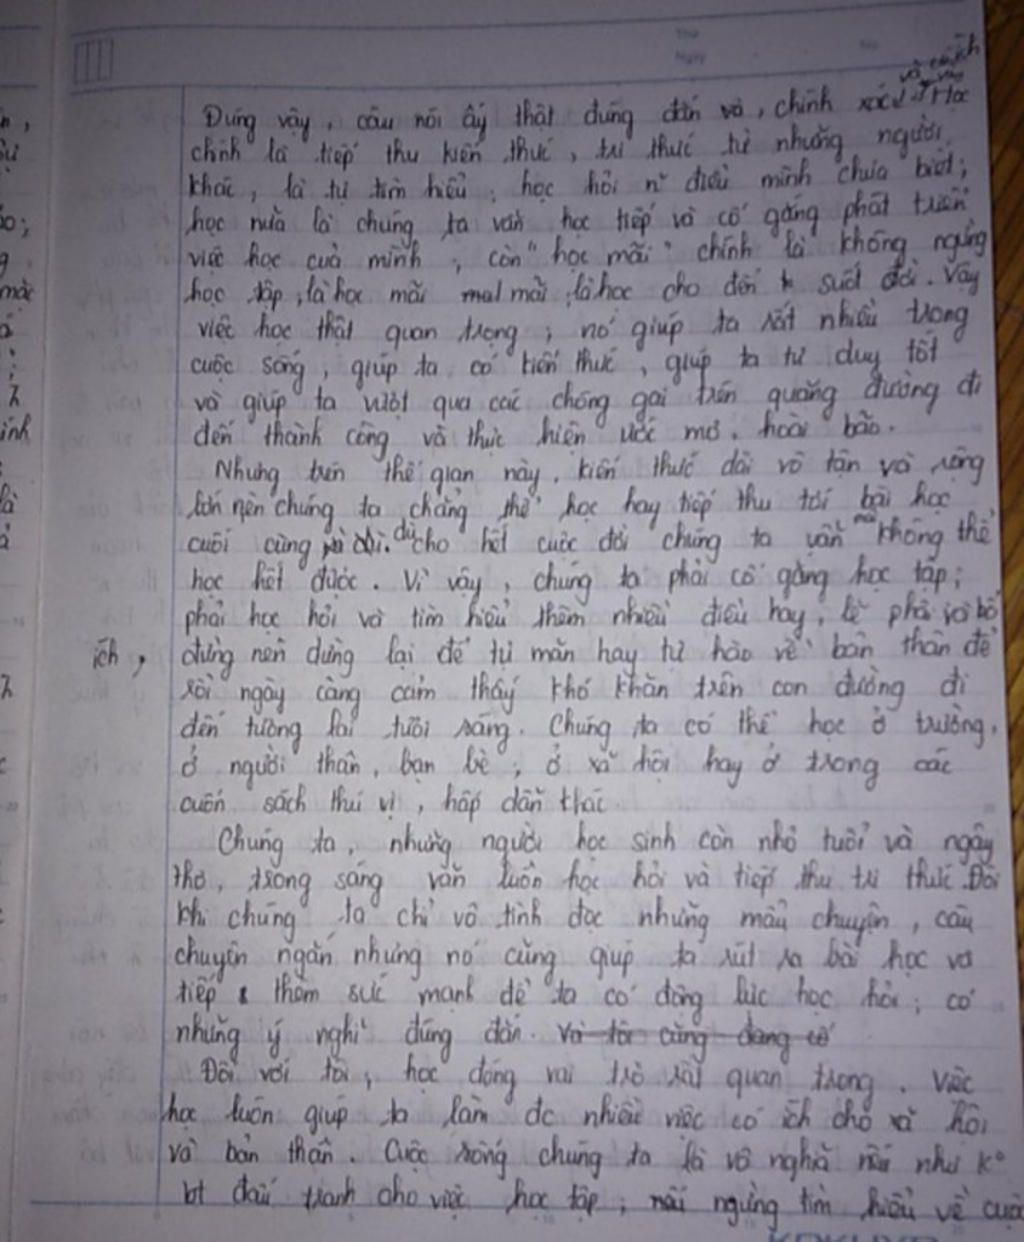 và cách
này
Đúng vậy, câu nói ấy thật đúng đắn và, chính xác. Học
chính là tiếp thu kiến thức, tri thức từ những người
khác, là tự tìm hiểu, học hỏi n~ điều mình chưa biết;
học nữa là chúng ta vẫn học tiếp và cố gắng phát triển
việc học của mình, còn "học mãi" chính là không ngừng
học tập, là học mãi mai mãi, là học cho đến suốt đời. Vậy
việc học thật quan trọng, nó giúp ta rất nhiều trong
cuộc sống, giúp ta có kiến thức, giúp ta tư duy tốt
và giúp ta vượt qua các chông gai trên quãng đường đi
đến thành công và thực hiện ước mơ, hoài bão.
Nhưng trên thế gian này, kiến thức dài vô tận và rộng
lớn nên chúng ta chẳng thể học hay tiếp thu tới bài học
cuối cùng dù cho hết cuộc đời chúng ta vẫn mãi không thể
học hết được. Vì vậy, chúng ta phải cố gắng học tập;
phải học hỏi và tìm hiểu thêm nhiều điều hay, lẽ phải và bổ
ích, đừng nên dừng lại để tự mãn hay tự hào về bản thân để
rồi ngày càng cảm thấy khó khăn trên con đường đi
đến tương lai tươi sáng. Chúng ta có thể học ở trường,
ở người thân, bạn bè, ở xã hội hay ở trong các
cuốn sách thú vị, hấp dẫn khác.
Chúng ta, những người học sinh còn nhỏ tuổi và ngây
thơ, trong sáng vẫn luôn học hỏi và tiếp thu tri thức. Đôi
khi chúng ta chỉ vô tình đọc những mẩu chuyện, câu
chuyện ngắn nhưng nó cũng giúp ta rút ra bài học và
tiếp thêm sức mạnh để ta có động lực học hỏi, có
những ý nghĩ đúng đắn. Và tôi cũng đang có
Đối với tôi, học đóng vai trò rất quan trọng. Việc
học luôn giúp ta làm đc nhiều việc có ích cho xã hội
và bản thân. Cuộc sống chúng ta là vô nghĩa nếu như k°
bt đấu tranh cho việc học tập; nếu ngừng tìm hiểu về cuộc